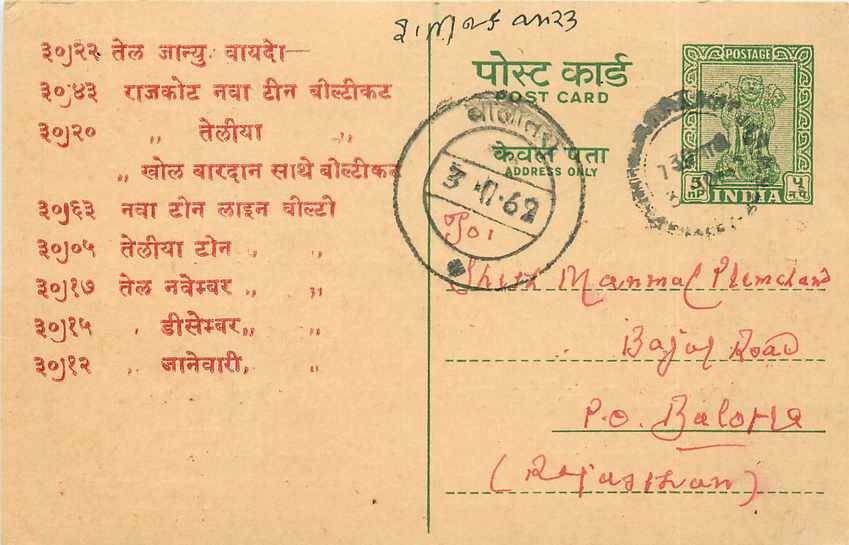 ३०)२२ तेल जान्यु. वायदो—
३०)४३ राजकोट नवा टीन बील्टीकट
३०)२० „ तेलीया „
„ खोल बारदान साथे बील्टीकट
३०)६३ नवा टीन लाइन बील्टी
३०)०५ तेलीया टीन „ „
३०)१७ तेल नवेम्बर „ „
३०)१५ „ डीसेम्बर „ „
३०)१२ „ जानेवारी, „
पोस्ट कार्ड
POST CARD
केवल पता
ADDRESS ONLY
POSTAGE
5 nP INDIA ५ न.पै.
3 11 62
To:
Manmal Premchand
Road
P.O. Balotra
(Rajasthan)